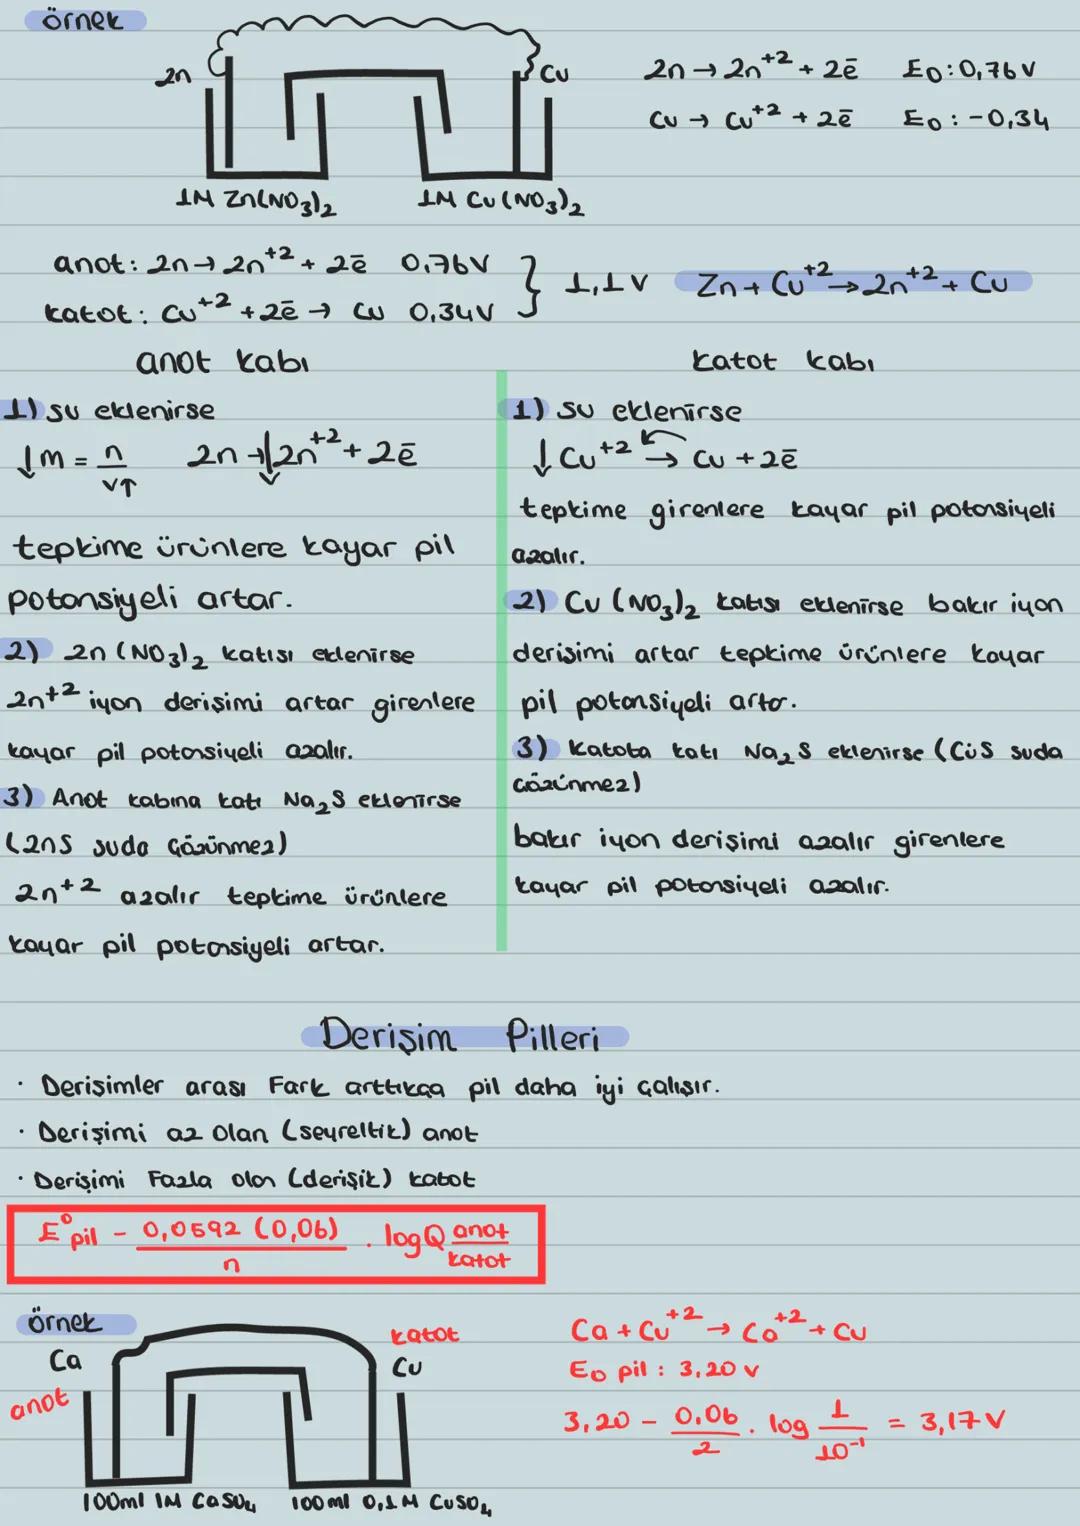 örnek
Zn
Cu
Zn → Zn⁺² + 2ē E₀: 0,76 V
Cu → Cu⁺² + 2ē E₀: -0,34
1M Zn(NO₃)₂
1M Cu(NO₃)₂
anot: Zn → Zn⁺² + 2ē 0,76V
katot: Cu⁺² + 2ē → Cu 0,34V
} 1,1 V
Zn + Cu⁺² → Zn⁺² + Cu
anot kabı
1) su eklenirse
↓M = n / V↑ Zn → ↓Zn⁺² + 2ē
tepkime ürünlere kayar pil
potansiyeli artar.
2) Zn(NO₃)₂ katısı eklenirse
Zn⁺² iyon derişimi artar girenlere
kayar pil potansiyeli azalır.
3) Anot kabına katı Na₂S eklenirse
(ZnS suda çözünmez)
Zn⁺² azalır tepkime ürünlere
kayar pil potansiyeli artar.
katot kabı
1) su eklenirse
↓Cu⁺² → Cu + 2ē
tepkime girenlere kayar pil potansiyeli
azalır.
2) Cu(NO₃)₂ katısı eklenirse bakır iyon
derişimi artar tepkime ürünlere kayar
pil potansiyeli artar.
3) Katota katı Na₂S eklenirse (CuS suda
çözünmez)
bakır iyon derişimi azalır girenlere
kayar pil potansiyeli azalır.
Derişim Pilleri
· Derişimler arası Fark arttıkça pil daha iyi çalışır.
· Derişimi az olan (seyreltik) anot
· Derişimi Fazla olan (derişik) katot
E⁰pil - 0,0592 (0,06) / n . logQ anot / katot
örnek
Ca
anot
katot
Cu
100ml 1M CaSO₄
100ml 0,1M CuSO₄
Ca + Cu⁺² → Ca⁺² + Cu
E₀ pil : 3,20 v
3,20 - 0,06 / 2 . log 1 / 10⁻¹ = 3,17 V